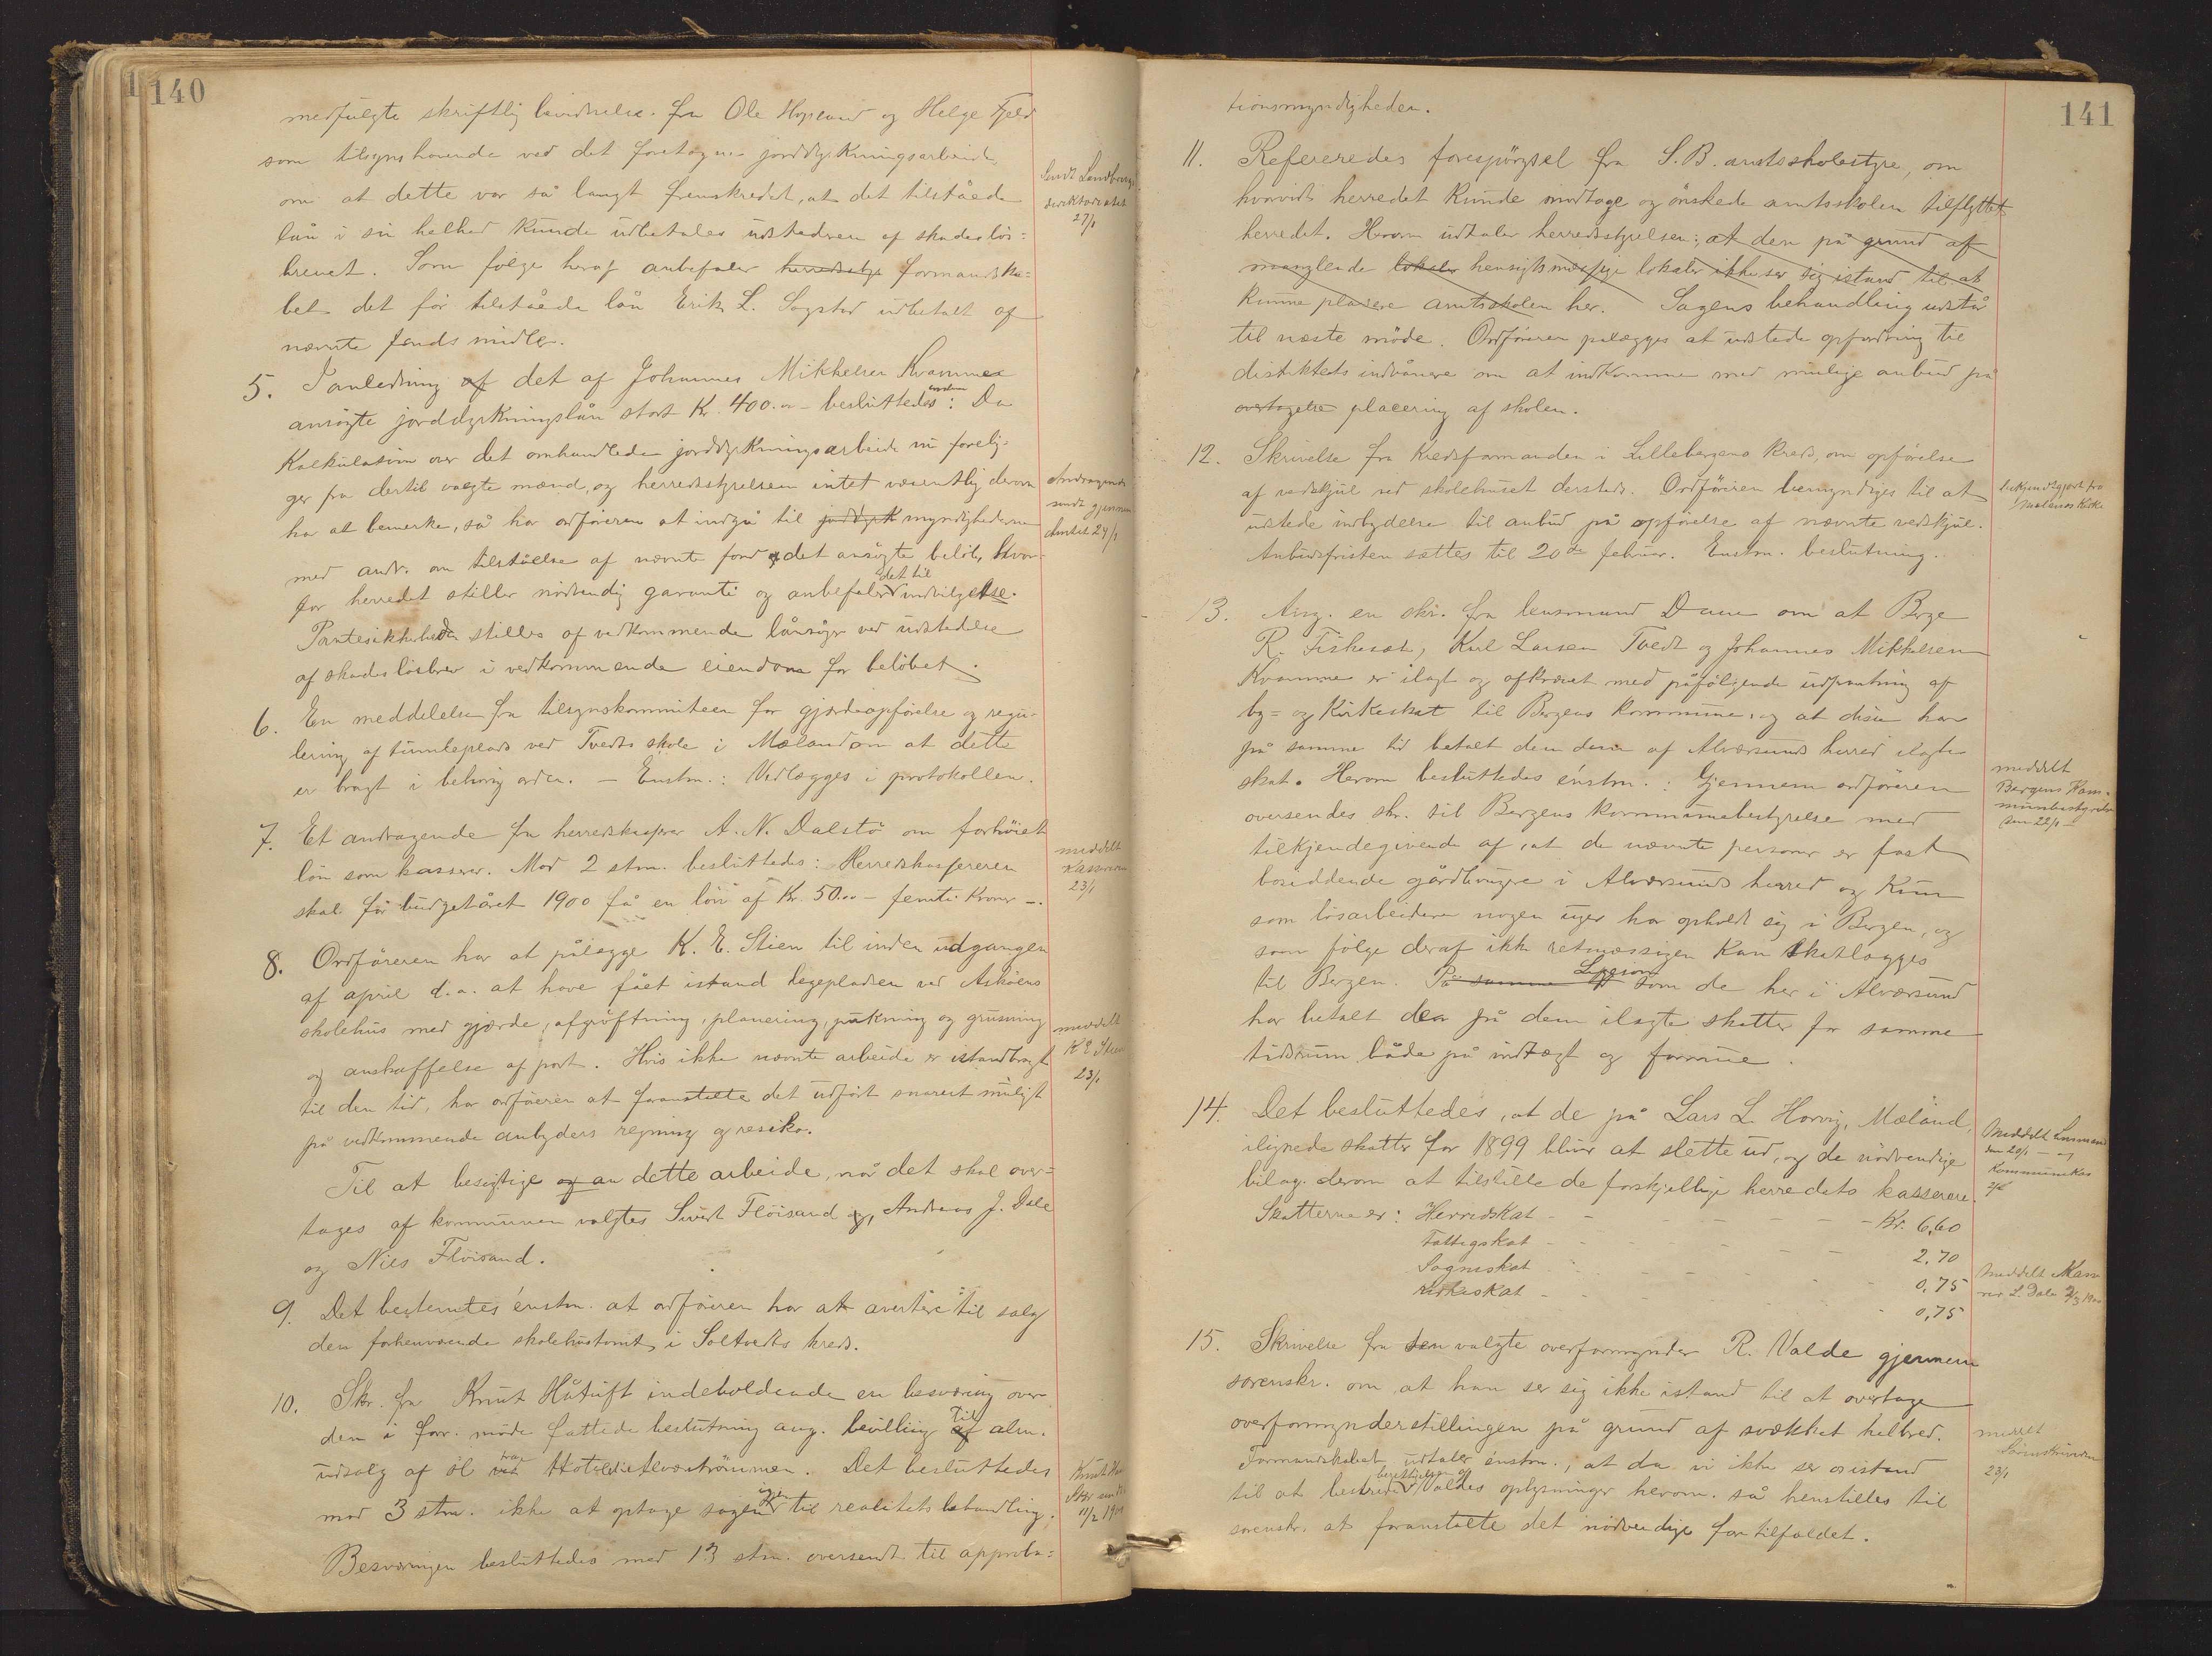 140
medfulgte skriftlig bevidnelse fra Ole Hopland og Helge Fjeld
som tilsynshavende ved det foretagne jorddyrkningsarbeide
om at dette var så langt fremskredet, at det tilståede
lån i sin helhed kunde udbetales udstederen af skadeslös=
brevet. Som følge heraf anbefaler herredsstyr formandska=
bet det før tilståede lån Erik L. Sagstad udbetalt af
nævnte fonds midler.
Sendt Landbrugs
direktoratet
27/1
5. I anledning af det af Johannes Mikkelsen Kvamme
ansøgte jorddyrkningslån stort Kr. 400.00 - besluttedes enstem: Da
Kalkulation over det omhandlede jorddyrkningsarbeide nu forelig=
ger fra dertil valgte mænd, og herredsstyrelsen intet væsentlig derom
har at bemerke, så har ordføreren at indgå til jorddyrk myndighederne
med andr. om tilståelse af nævnte fond det ansøgte beløb, hvor=
for herredet stiller nødvendig garanti og anbefaler det til indvilgelse.
Pantesikkerheden stilles af vedkommende lånsøger ved udstedelse
af skadeslösbrev i vedkommende eiendom for beløbet.
Andragende
sendt gjennem
Amtet 24/1
6. En meddelelse fra tilsynskommiteen for gjerdeopførelse og regu=
lering af tumleplads ved Tvedts skole i Mæland om at dette
er bragt i behørig orden. - Enstm.: Vedlægges i protokollen.
7. Et andragende fra herredskasserer A. N. Dalstö om forhöiet
løn som kasserer. Mod 2 stm. besluttedes: Herredskassereren
skal för budgetåret 1900 få en lön af Kr. 50.00 - femti Kroner -.
meddelt
Kassereren
23/1
8. Ordføreren har at pålægge K. E. Stien til inden udgangen
af april d. a. at have fået istand legepladsen ved Asköens
skolehus med gjærde, afgröftning, planering, pukning og grusning
og anskaffelse af port. Hvis ikke nævnte arbeide er istandbragt
til den tid, har ordföreren at foranstalte det udført snarest muligt
på vedkommende anbyders regning og resiko.
meddelt
K E Stien
23/1
Til at besigtige og an dette arbeide, når det skal over=
tages af kommunen valgtes Sivert Flöisand og, Andreas J. Dale
og Nils Flöisand.
9. Det bestemtes énstm. at ordföreren har at avertere til salg
den forhenværende skolehustomt i Soltvedts kreds.
10. Skr. fra Knut Håtuft indeholdende en besværing over
den i forr. møde fattede beslutning ang. bevilling til af alm.
udsalg af öl ved fra Hotel Alverströmmen. Det besluttedes
mod 3 stm. ikke at optage sagen igjen til realitetsbehandling.
Besværingen besluttedes med 13 stm. oversendt til approba=
Knut
Skr sendt
11/2 1900
141
tionsmyndigheden.
11. Refereredes forespörgsel fra S. B. amtsskolestyre, om
hvorvidt herredet kunde modtage og önskede amtsskolen tilflyttet
herredet. Herom udtaler herredsstyrelsen: at den på grund af
manglende lokaler hensigtsmæssige lokaler ikke ser sig istand til at
kunne placere amtsskolen her. Sagens behandling udstår
til næste möde. Ordföreren pålægges at udstede opfordring til
distriktets indvånere om at indkomme med mulige anbud på
overtagelse placering af skolen.
12. Skrivelse fra Kredsformanden i Lillebergens Kreds, om opförelse
af vedskjul ved skolehuset dersteds. Ordföreren bemyndiges til at
udstede indbydelse til anbud på opförelse af nævnte vedskjul.
Anbudsfristen sættes til 20de februar. Enstm. beslutning.
bekjendtgjort fra
Mælands Kirke
13. Ang. en skr. fra lensmand Daae om at Berge
R. Fiskeset, Karl Larsen Tvedt og Johannes Mikkelsen
Kvamme er ilagt og afkrævet med påfölgende udpantning af
by= og Kirkeskat til Bergens kommune, og at disse har
på samme tid betalt den dem af Alversunds herred ilagte
skat. Herom besluttedes énstm.: Gjennem ordföreren
oversendes skr. til Bergens kommunebestyrelse med
tilkjendegivende af, at de nævnte personer er fast
bosiddende gårdbrugere i Alversunds herred og Kun
som lösarbeidere nogen uger har opholdt sig i Bergen, og
som fölge deraf ikke retmæssigen Kan skatlægges
til Bergen. På samme Ligesom som de her i Alversund
har betalt den på dem ilagte skatter for samme
tidsrum både på indtægt og formue.
meddelt
Bergens Kom=
munebestyrelse
den 22/1 -
14. Det besluttedes, at de på Lars L. Horvig, Mæland,
ilignede skatter for 1899 bliver at slette ud, og de nödvendige
bilag derom at tilstille de forskjellige herredets kasserere.
Skatterne er: Herredskat - - - - Kr. 6,60
Fattigskat - - - - 2,70
Sogneskat - - - - 0,75
Kirkeskat - - - - 0,75
Meddelt Lensmand
den 20/1 - og
Kommunekas
Meddelt Kasse
rer L. Dale 2/3 1900
15. Skrivelse fra den valgte overformynder R. Valde gjennem
sorenskr. om, at han ser sig ikke istand til at overtage
overformynderstillingen på grund af svækket helbred.
Formandskabet udtaler énstm., at da vi ikke ser os istand
til at bestride berettigelsen af Valdes oplysninger herom. så henstilles til
sorenskr. at foranstalte det nödvendige for tilfaldet.
meddelt
Sorenskriveren
23/1